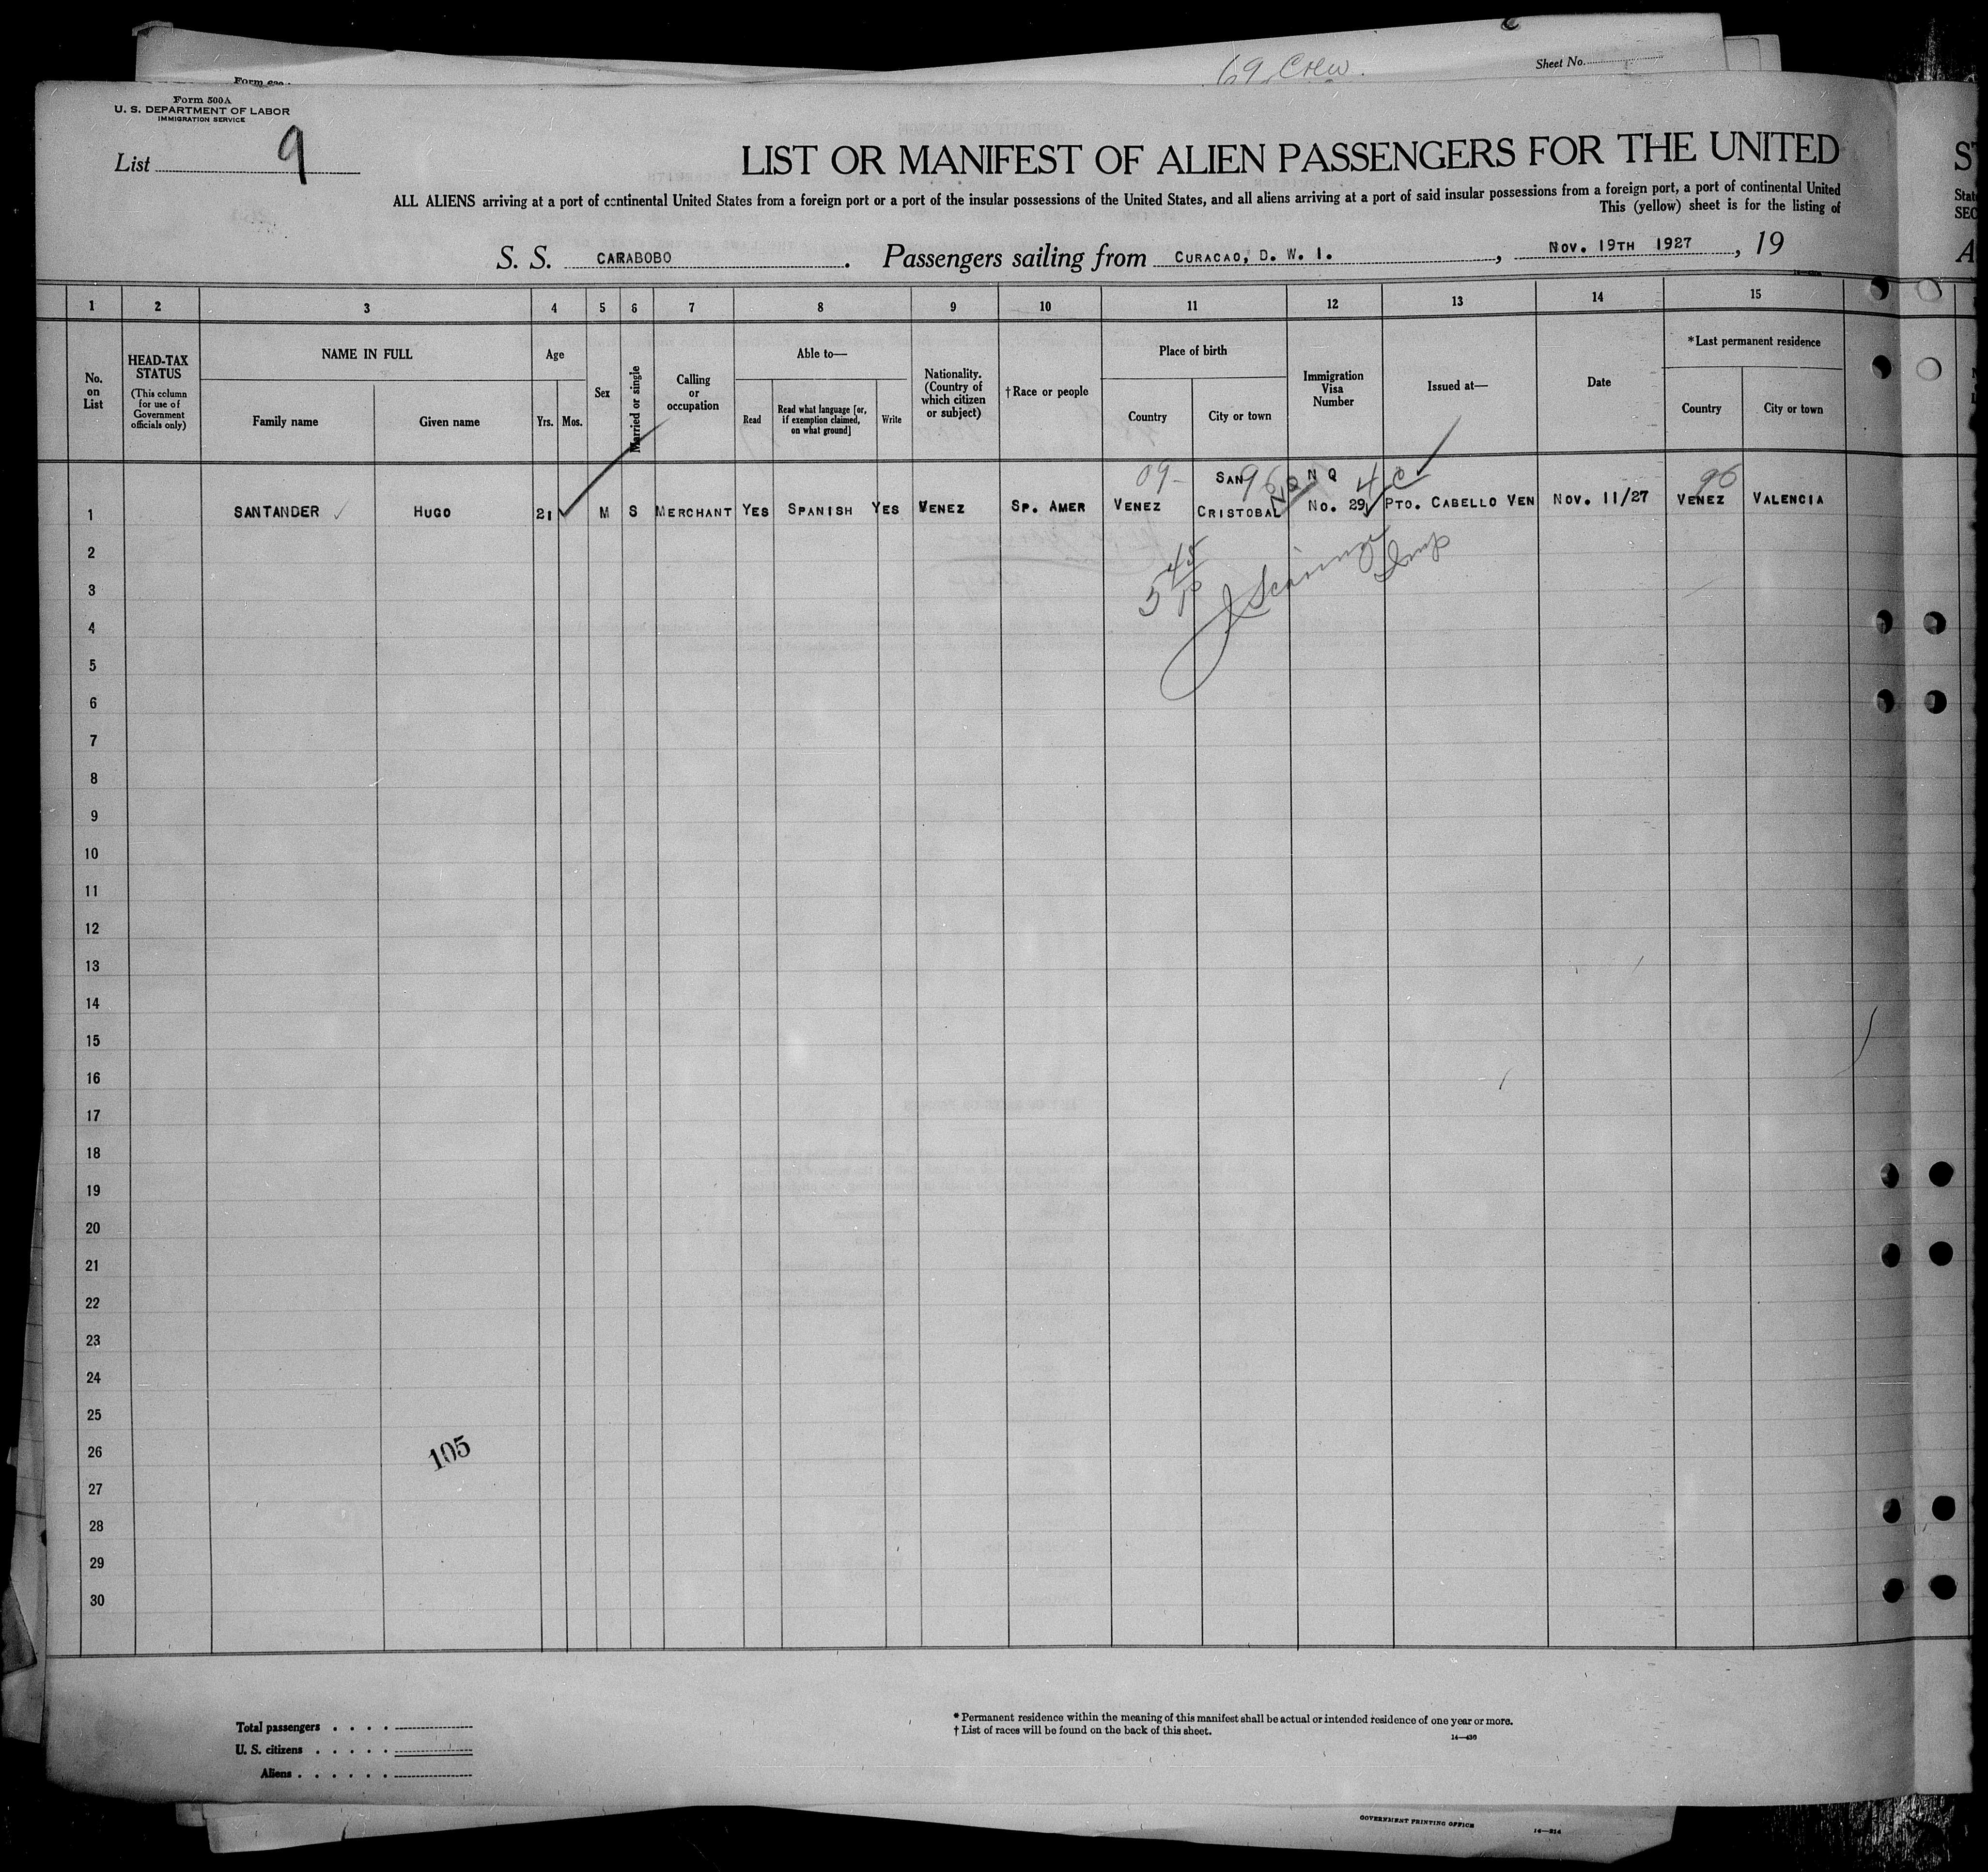 69 Crew.
Sheet No.
Form 500A
U. S. DEPARTMENT OF LABOR
IMMIGRATION SERVICE
List 9
LIST OR MANIFEST OF ALIEN PASSENGERS FOR THE UNITED
ALL ALIENS arriving at a port of continental United States from a foreign port or a port of the insular possessions of the United States, and all aliens arriving at a port of said insular possessions from a foreign port, a port of continental United
This (yellow) sheet is for the listing of
S. S. CARABOBO. Passengers sailing from CURACAO, D. W. I., NOV. 19TH 1927, 19
1 2 3 4 5 6 7 8 9 10 11 12 13 14 15
No. on List
HEAD-TAX STATUS
(This column for use of Government officials only)
NAME IN FULL
Family name
Given name
Age
Yrs.
Mos.
Sex
Married or single
Calling or occupation
Able to—
Read
Read what language [or, if exemption claimed, on what ground]
Write
Nationality. (Country of which citizen or subject)
†Race or people
Place of birth
Country
City or town
Immigration Visa Number
Issued at—
Date
*Last permanent residence
Country
City or town
09- SAN 96 NQ N Q 4 C 96
1 SANTANDER HUGO 21 M S MERCHANT YES SPANISH YES VENEZ SP. AMER VENEZ CRISTOBAL NO. 29 PTO. CABELLO VEN NOV. 11/27 VENEZ VALENCIA
2
3
4
5
6
7
8
9
10
11
12
13
14
15
16
17
18
19
20
21
22
23
24
25
26
105
27
28
29
30
Total passengers
U. S. citizens
Aliens
* Permanent residence within the meaning of this manifest shall be actual or intended residence of one year or more.
† List of races will be found on the back of this sheet.
14—430
GOVERNMENT PRINTING OFFICE
14—214